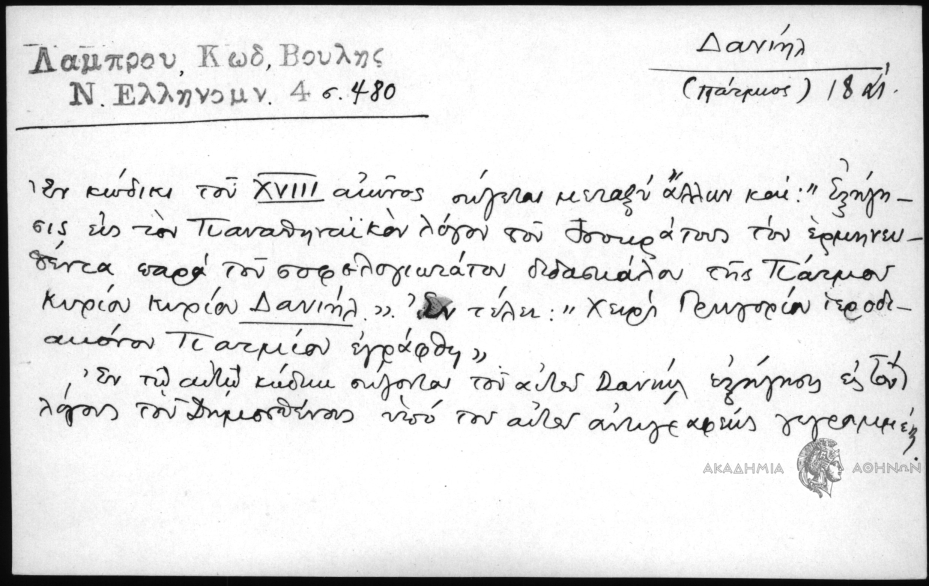 Λαμπρου, Κωδ, Βουλης
Ν. Ελληνομν. 4 σ. 480
Δανιήλ
(Πάτμιος) 18 αἰ.
Ἐν κώδικι τοῦ XVIII αἰῶνος σώζεται μεταξὺ ἄλλων καὶ: "Ἐξήγη-
σις εἰς τὸν Παναθηναϊκὸν λόγον τοῦ Ἰσοκράτους τὸν ἑρμηνευ-
θέντα παρὰ τοῦ σοφολογιωτάτου διδασκάλου τῆς Πάτμου
κυρίου κυρίου Δανιήλ". Ἐν τέλει: "Χειρὶ Γρηγορίου ἱεροδι-
ακόνου Πατμίου ἐγράφθη"
Ἐν τῷ αὐτῷ κώδικι σώζονται τοῦ αὐτοῦ Δανιήλ ἐξήγησης εἰς τοὺς
λόγους τοῦ Δημοσθένους ὑπὸ τοῦ αὐτοῦ ἀντιγραφέως
ΑΚΑΔΗΜΙΑ ΑΘΗΝΩΝ